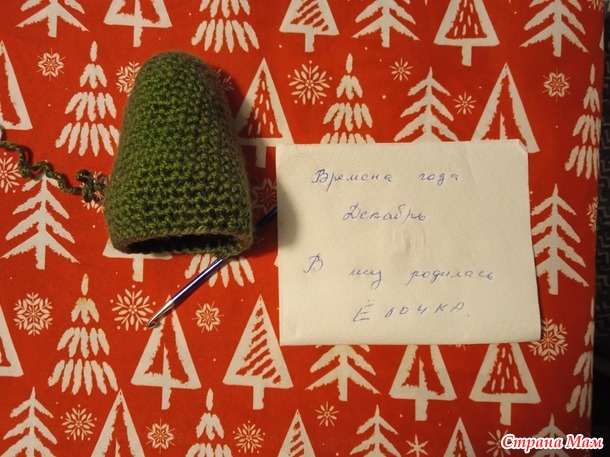 Времена года
Декабрь
В лесу родилась
Ёлочка.
Страна Мам